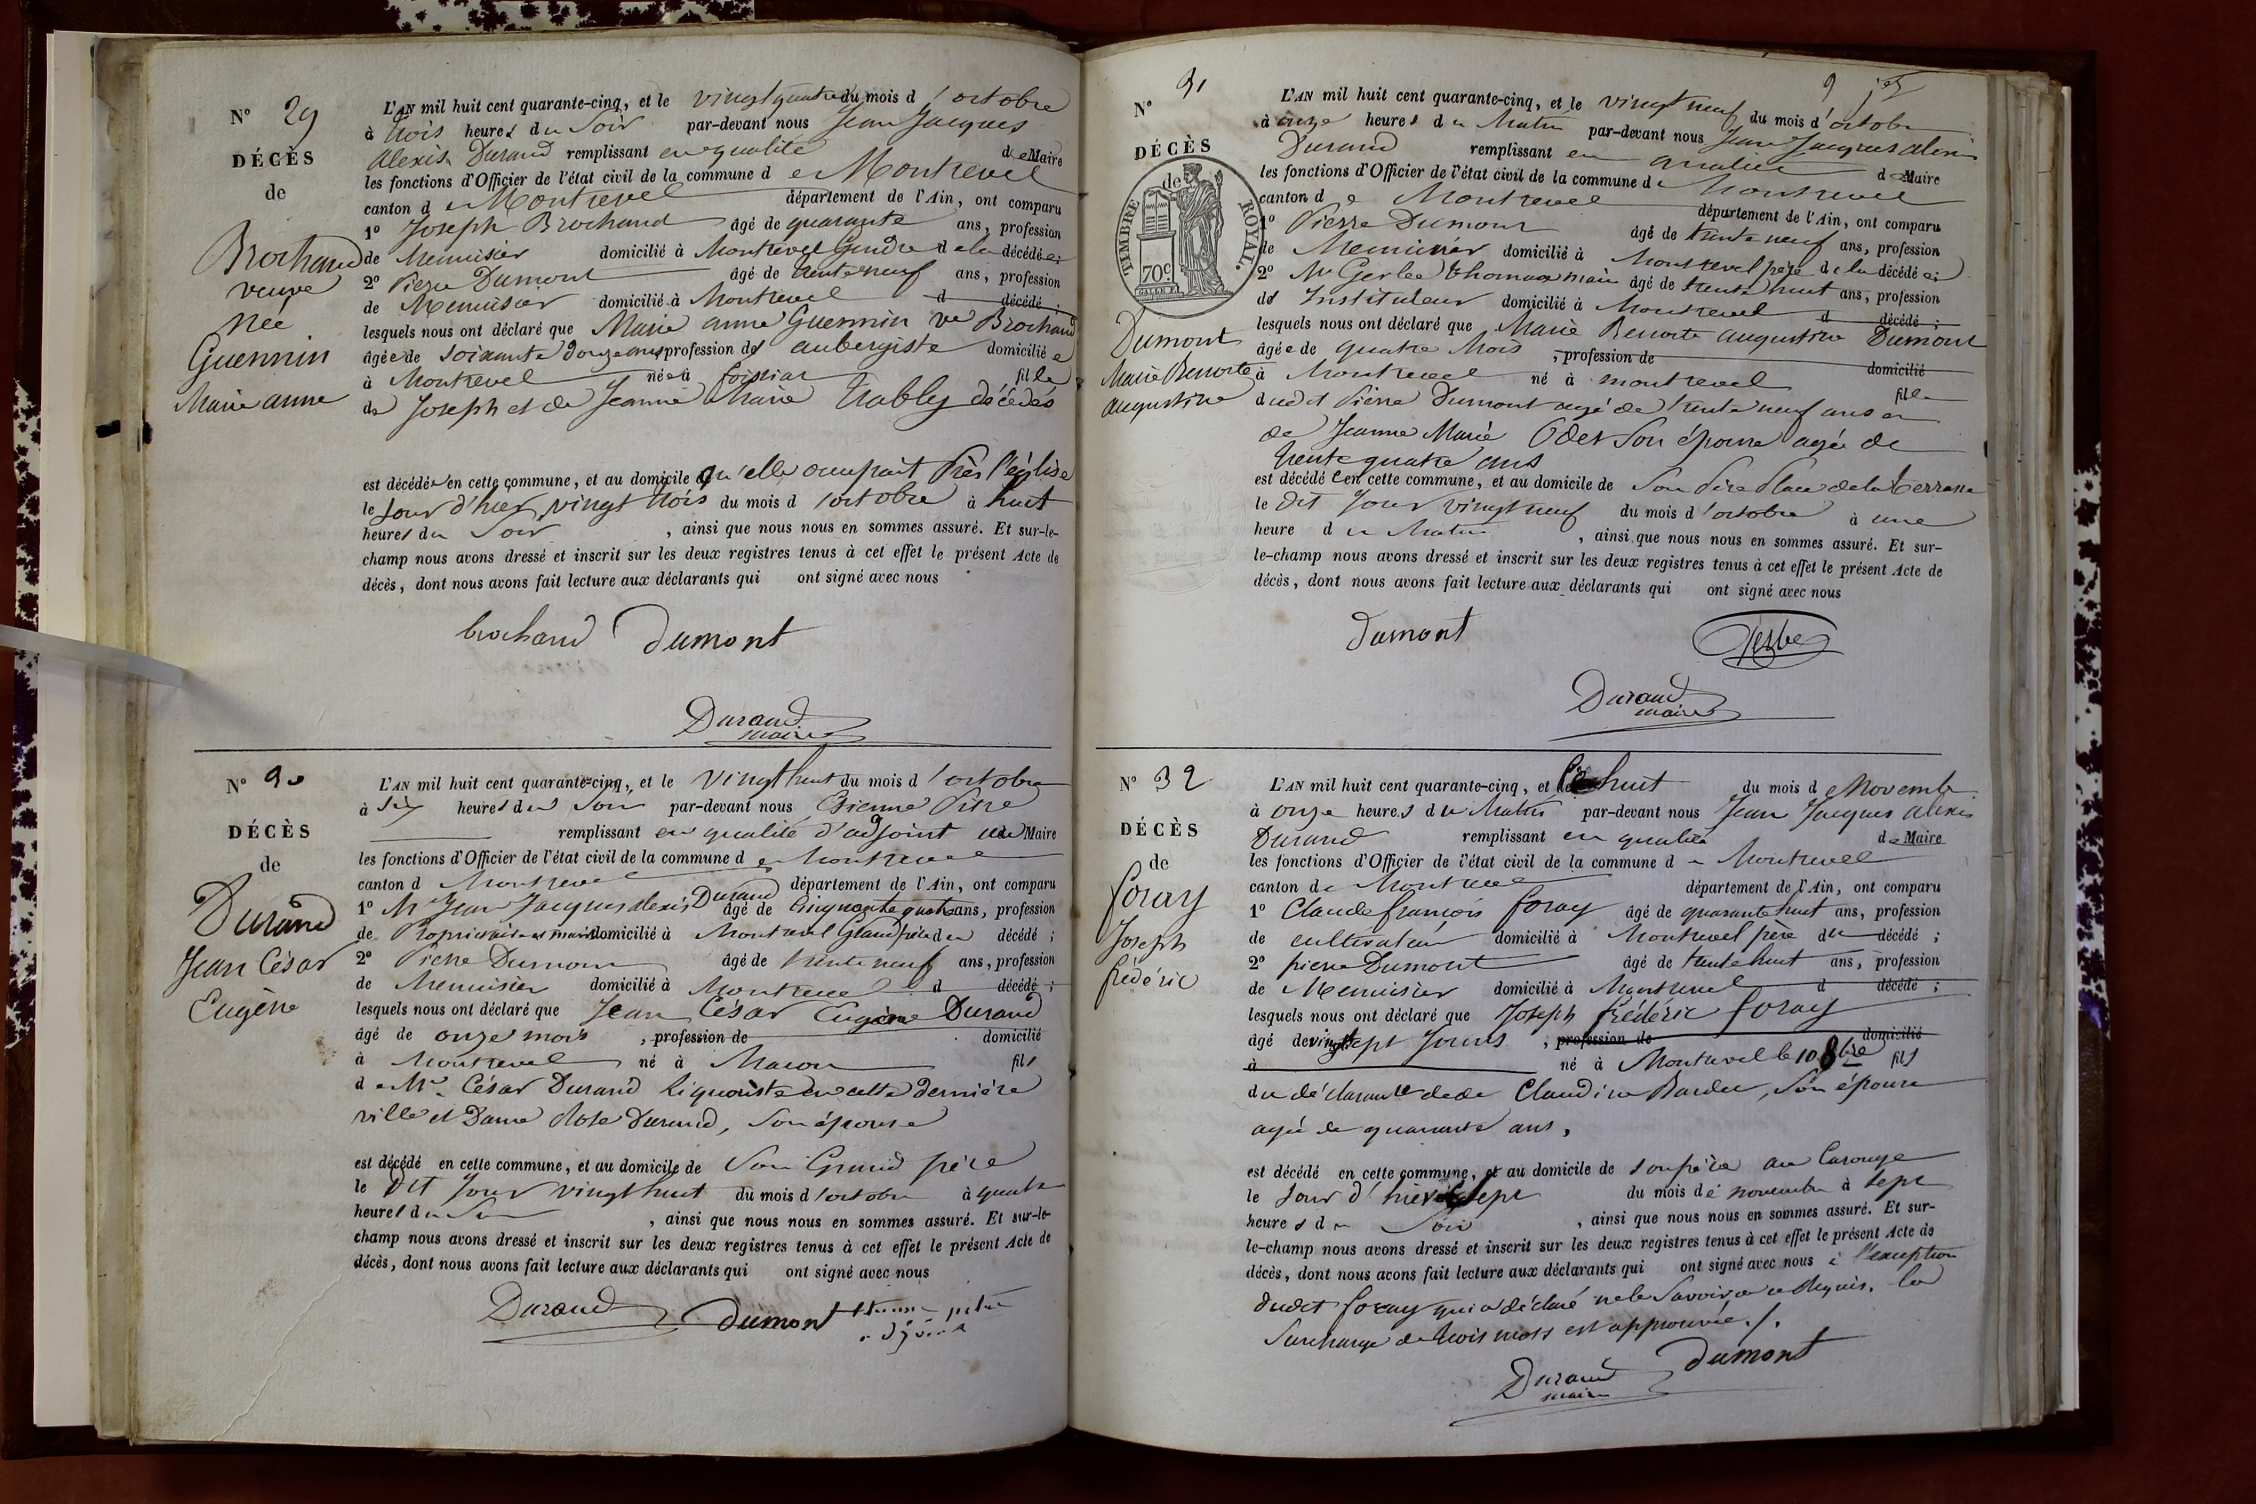 N° 29
DÉCÈS
de
Brochand
veuve
née
Guennin
Marie anne
L'AN mil huit cent quarante-cinq, et le vingt quatre du mois d'octobre
à trois heures du Soir par-devant nous Jean Jacques
Alexis Durand remplissant en qualité de Maire
les fonctions d'Officier de l'état civil de la commune de Montrevel
canton de Montrevel département de l'Ain, ont comparu
1° Joseph Brochand âgé de quarante ans, profession
de Menuisier domicilié à Montrevel Gendre de la décédée;
2° Pierre Dumont âgé de trente neuf ans, profession
de Menuisier domicilié à Montrevel d décédé;
lesquels nous ont déclaré que Marie anne Guennin ve Brochand
âgée de soixante douze ans profession des aubergiste domiciliée
à Montrevel née à foissiat fille
de Joseph et de Jeanne Marie Trably décédés
est décédée en cette commune, et au domicile qu'elle occupait Près l'église
le Jour d'hier vingt trois du mois d'octobre à huit
heures du Soir, ainsi que nous nous en sommes assuré. Et sur-le-
champ nous avons dressé et inscrit sur les deux registres tenus à cet effet le présent Acte de
décès, dont nous avons fait lecture aux déclarants qui ont signé avec nous
brochand dumont
Durand
maire
N° 30
DÉCÈS
de
Durand
Jean César
Eugène
L'AN mil huit cent quarante-cinq, et le vingt huit du mois d'octobre
à six heures du Soir par-devant nous Etienne Pitre
remplissant en qualité d'adjoint au Maire
les fonctions d'Officier de l'état civil de la commune de Montrevel
canton d Montrevel département de l'Ain, ont comparu
1° Mr Jean Jacques alexis Durand âgé de Cinquante quatre ans, profession
de Propriétaire et maire domicilié à Montrevel Grand père du décédé;
2° Pierre Dumont âgé de trente neuf ans, profession
de Menuisier domicilié à Montrevel d décédé;
lesquels nous ont déclaré que Jean César Eugène Durand
âgé de onze mois, profession de domicilié
à Montrevel né à Macon fils
de Mr César Durand liquoriste en cette dernière
ville et Dame Rose Durand, Son épouse
est décédé en cette commune, et au domicile de Son Grand père
le Dit Jour vingt huit du mois d'octobre à quatre
heures du Soir, ainsi que nous nous en sommes assuré. Et sur-le-
champ nous avons dressé et inscrit sur les deux registres tenus à cet effet le présent Acte de
décès, dont nous avons fait lecture aux déclarants qui ont signé avec nous
Durand dumont Etienne pitre
adjoint
N° 31
DÉCÈS
de
TIMBRE ROYAL.
70c
Dumont
Marie Benoite
augustine
L'AN mil huit cent quarante-cinq, et le vingt neuf du mois d'octobre
à onze heures du Matin par-devant nous Jean Jacques alexis
Durand remplissant en qualité de Maire
les fonctions d'Officier de l'état civil de la commune de Montrevel
canton de Montrevel département de l'Ain, ont comparu
1° Pierre Dumont âgé de trente neuf ans, profession
de Menuisier domicilié à Montrevel père de la décédée;
2° Mr Gerbe thomas marie âgé de trente huit ans, profession
d Instituteur domicilié à Montrevel d décédé;
lesquels nous ont déclaré que Marie Benoite augustine Dumont
âgée de quatre Mois, profession de domicilié
à Montrevel né à montrevel fille
dudit Pierre Dumont agé de trente neuf ans et
de Jeanne Marie Odet Son épouse agée de
trente quatre ans
est décédée en cette commune, et au domicile de Son Père Place de la terrasse
le Dit Jour vingt neuf du mois d'octobre à une
heure du Matin, ainsi que nous nous en sommes assuré. Et sur-
le-champ nous avons dressé et inscrit sur les deux registres tenus à cet effet le présent Acte de
décès, dont nous avons fait lecture aux déclarants qui ont signé avec nous
dumont Gerbe
Durand
maire
N° 32
DÉCÈS
de
foray
Joseph
frédéric
L'AN mil huit cent quarante-cinq, et le huit du mois de Novembre
à onze heures du Matin par-devant nous Jean Jacques alexis
Durand remplissant en qualité de Maire
les fonctions d'Officier de l'état civil de la commune de Montrevel
canton de Montrevel département de l'Ain, ont comparu
1° Claude françois foray âgé de quarante huit ans, profession
de cultivateur domicilié à Montrevel père du décédé;
2° pierre Dumont âgé de trente huit ans, profession
de Menuisier domicilié à Montrevel d décédé;
lesquels nous ont déclaré que Joseph frédéric foray
âgé de vingt sept Jours, profession de domicilié
à né à Montrevel le 10 8bre fils
du déclarant et de Claudine Bardet, Son épouse
agée de quarante ans,
est décédé en cette commune, et au domicile de son père au Carouge
le Jour d'hier Sept du mois de novembre à sept
heures du Soir, ainsi que nous nous en sommes assuré. Et sur-
le-champ nous avons dressé et inscrit sur les deux registres tenus à cet effet le présent Acte de
décès, dont nous avons fait lecture aux déclarants qui ont signé avec nous à l'exception
dudit foray qui a déclaré ne le Savoir de ce Requis. la
Surcharge de trois mots est approuvée./.
Durand dumont
maire